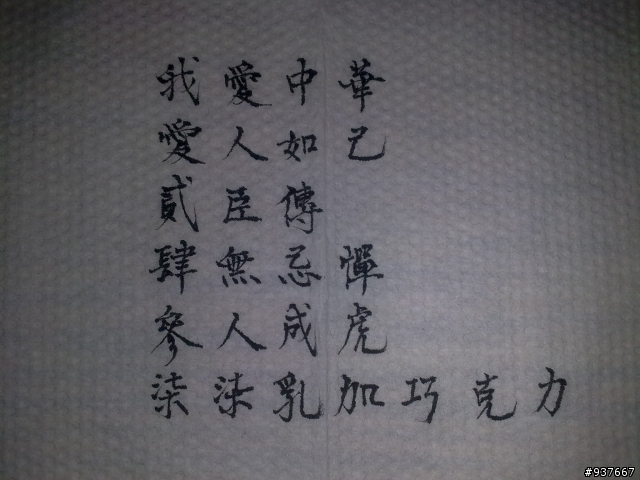 我愛中華
愛人如己
貳臣傳
肆無忌憚
參人成虎
柒法乳加巧克力
#937667